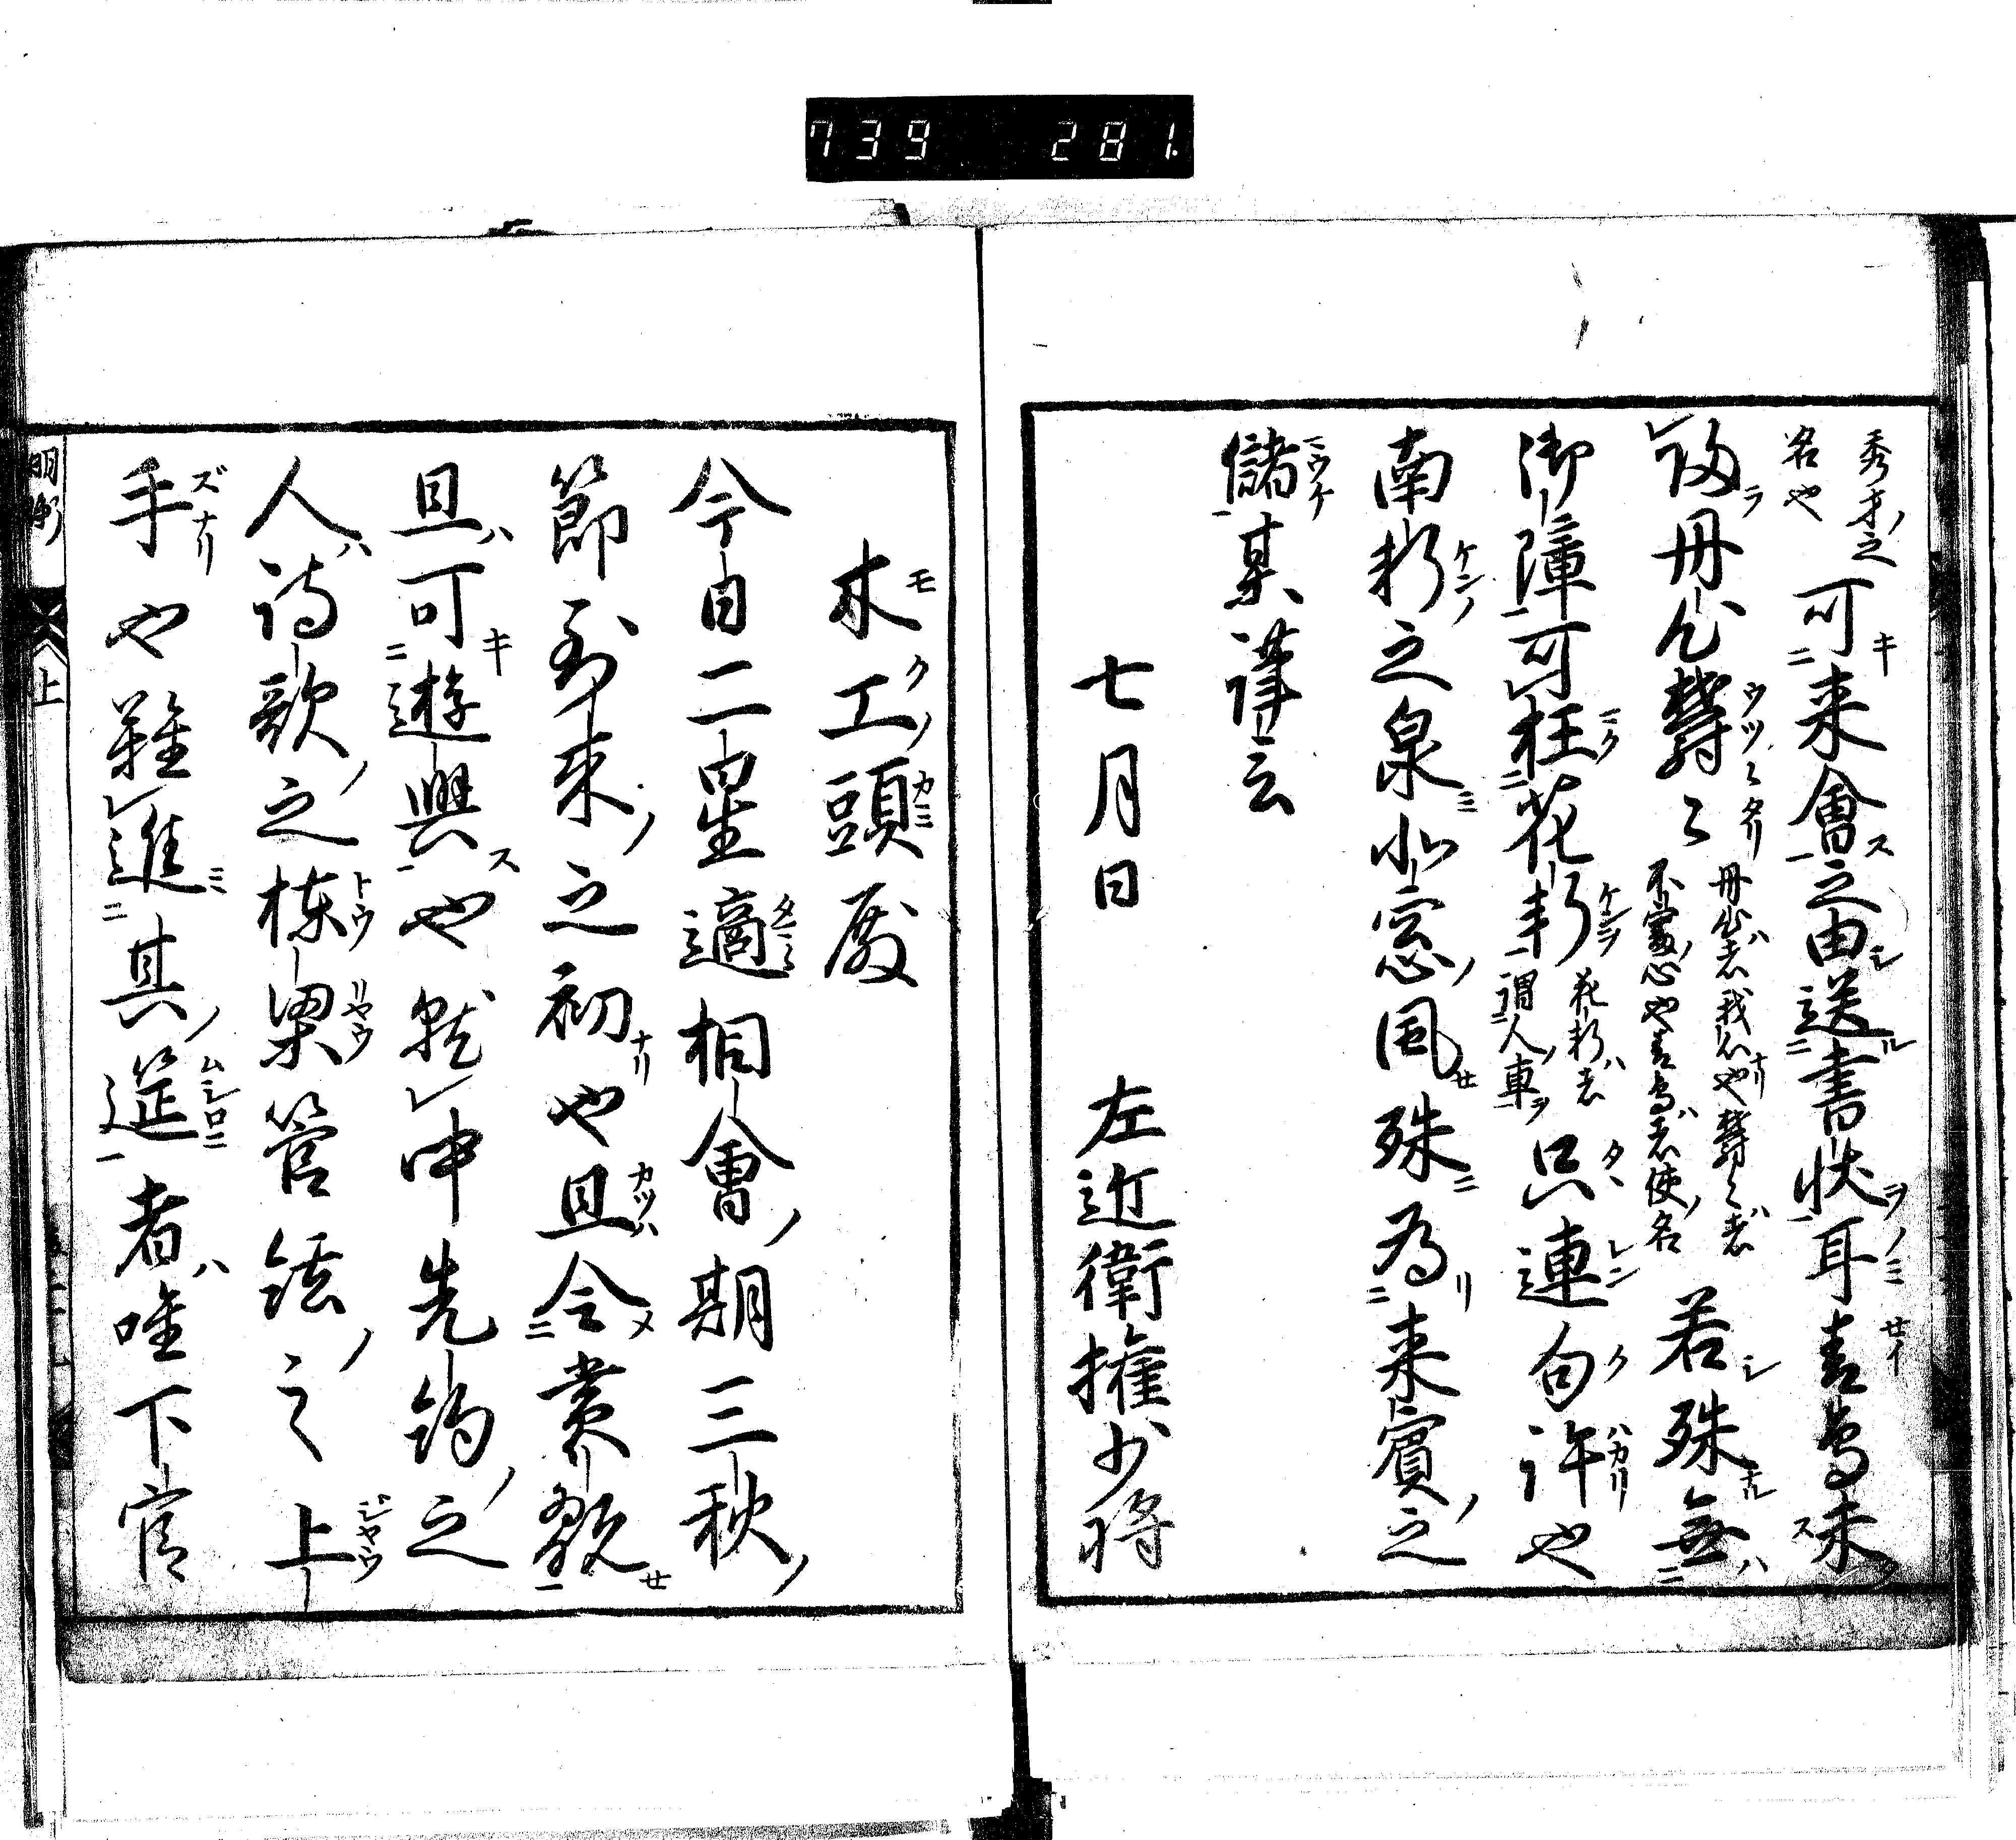 739 281.
秀才之
名也
可来會之由送書状耳青鳥未
皈丹心欝〻
丹心者我心也欝〻者
不寛心也青鳥者使名
若殊無
御障可枉花軒
花軒者
謂人車
只連句許也
南軒之泉北窓風殊為来賓之
儲某謹言
七月日 左近衛権少将
木工頭殿
今日二星適相會期三秋
節到来之初也且令賞翫
且可遊興也就中先約之
人詩歌之棟梁管絃之上
手也難進其筵者唯下官
明衡 上